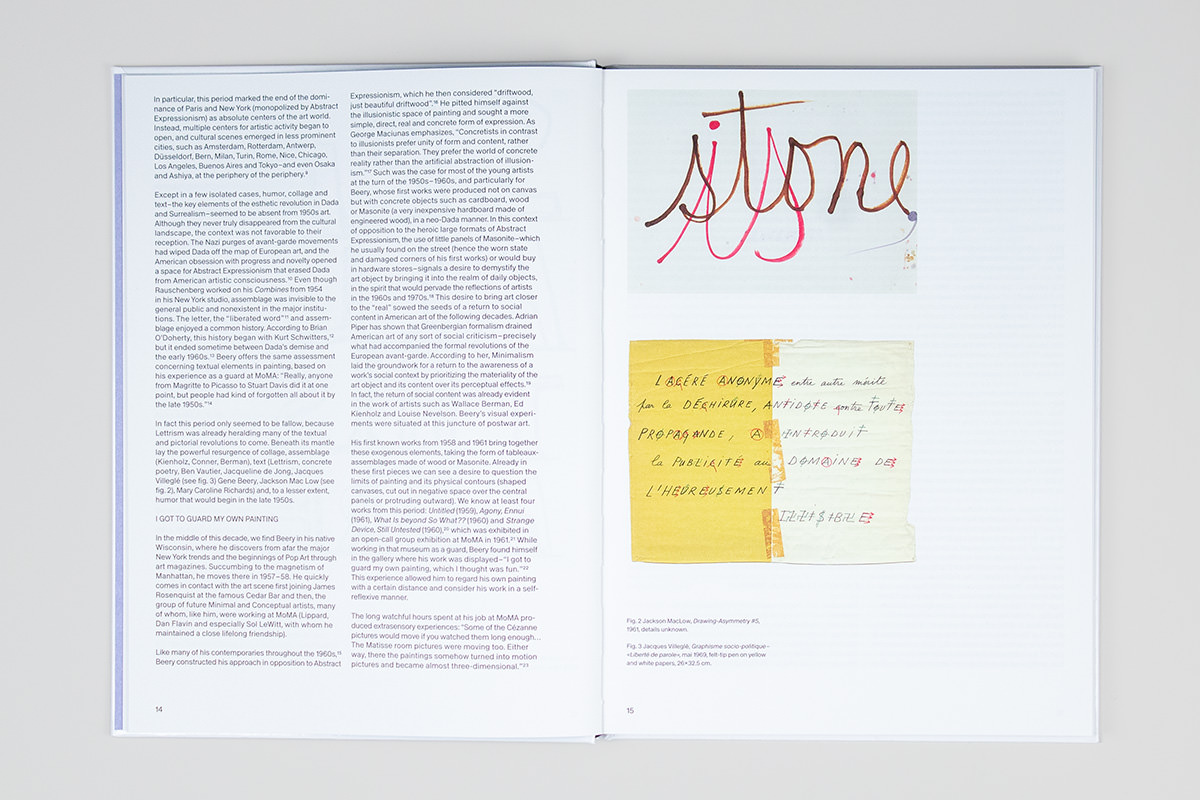 In particular, this period marked the end of the domi-
nance of Paris and New York (monopolized by Abstract
Expressionism) as absolute centers of the art world.
Instead, multiple centers for artistic activity began to
open, and cultural scenes emerged in less prominent
cities, such as Amsterdam, Rotterdam, Antwerp,
Düsseldorf, Bern, Milan, Turin, Rome, Nice, Chicago,
Los Angeles, Buenos Aires and Tokyo–and even Osaka
and Ashiya, at the periphery of the periphery.⁹
Except in a few isolated cases, humor, collage and
text–the key elements of the esthetic revolution in Dada
and Surrealism–seemed to be absent from 1950s art.
Although they never truly disappeared from the cultural
landscape, the context was not favorable to their
reception. The Nazi purges of avant-garde movements
had wiped Dada off the map of European art, and the
American obsession with progress and novelty opened
a space for Abstract Expressionism that erased Dada
from American artistic consciousness.¹⁰ Even though
Rauschenberg worked on his Combines from 1954
in his New York studio, assemblage was invisible to the
general public and nonexistent in the major institu-
tions. The letter, the “liberated word”¹¹ and assem-
blage enjoyed a common history. According to Brian
O’Doherty, this history began with Kurt Schwitters,¹²
but it ended sometime between Dada’s demise and
the early 1960s.¹³ Beery offers the same assessment
concerning textual elements in painting, based on
his experience as a guard at MoMA: “Really, anyone
from Magritte to Picasso to Stuart Davis did it at one
point, but people had kind of forgotten all about it by
the late 1950s.”¹⁴
In fact this period only seemed to be fallow, because
Lettrism was already heralding many of the textual
and pictorial revolutions to come. Beneath its mantle
lay the powerful resurgence of collage, assemblage
(Kienholz, Conner, Berman), text (Lettrism, concrete
poetry, Ben Vautier, Jacqueline de Jong, Jacques
Villeglé (see fig. 3) Gene Beery, Jackson Mac Low (see
fig. 2), Mary Caroline Richards) and, to a lesser extent,
humor that would begin in the late 1950s.
I GOT TO GUARD MY OWN PAINTING
In the middle of this decade, we find Beery in his native
Wisconsin, where he discovers from afar the major
New York trends and the beginnings of Pop Art through
art magazines. Succumbing to the magnetism of
Manhattan, he moves there in 1957–58. He quickly
comes in contact with the art scene first joining James
Rosenquist at the famous Cedar Bar and then, the
group of future Minimal and Conceptual artists, many
of whom, like him, were working at MoMA (Lippard,
Dan Flavin and especially Sol LeWitt, with whom he
maintained a close lifelong friendship).
Like many of his contemporaries throughout the 1960s,¹⁵
Beery constructed his approach in opposition to Abstract
14
Expressionism, which he then considered “driftwood,
just beautiful driftwood”.¹⁶ He pitted himself against
the illusionistic space of painting and sought a more
simple, direct, real and concrete form of expression. As
George Maciunas emphasizes, “Concretists in contrast
to illusionists prefer unity of form and content, rather
than their separation. They prefer the world of concrete
reality rather than the artificial abstraction of illusion-
ism.”¹⁷ Such was the case for most of the young artists
at the turn of the 1950s–1960s, and particularly for
Beery, whose first works were produced not on canvas
but with concrete objects such as cardboard, wood
or Masonite (a very inexpensive hardboard made of
engineered wood), in a neo-Dada manner. In this context
of opposition to the heroic large formats of Abstract
Expressionism, the use of little panels of Masonite–which
he usually found on the street (hence the worn state
and damaged corners of his first works) or would buy
in hardware stores–signals a desire to demystify the
art object by bringing it into the realm of daily objects,
in the spirit that would pervade the reflections of artists
in the 1960s and 1970s.¹⁸ This desire to bring art closer
to the “real” sowed the seeds of a return to social
content in American art of the following decades. Adrian
Piper has shown that Greenbergian formalism drained
American art of any sort of social criticism–precisely
what had accompanied the formal revolutions of the
European avant-garde. According to her, Minimalism
laid the groundwork for a return to the awareness of a
work’s social context by prioritizing the materiality of the
art object and its content over its perceptual effects.¹⁹
In fact, the return of social content was already evident
in the work of artists such as Wallace Berman, Ed
Kienholz and Louise Nevelson. Beery’s visual experi-
ments were situated at this juncture of postwar art.
His first known works from 1958 and 1961 bring together
these exogenous elements, taking the form of tableaux-
assemblages made of wood or Masonite. Already in
these first pieces we can see a desire to question the
limits of painting and its physical contours (shaped
canvases, cut out in negative space over the central
panels or protruding outward). We know at least four
works from this period: Untitled (1959), Agony, Ennui
(1961), What Is beyond So What?? (1960) and Strange
Device, Still Untested (1960),²⁰ which was exhibited in
an open-call group exhibition at MoMA in 1961.²¹ While
working in that museum as a guard, Beery found himself
in the gallery where his work was displayed–“I got to
guard my own painting, which I thought was fun.”²²
This experience allowed him to regard his own painting
with a certain distance and consider his work in a self-
reflexive manner.
The long watchful hours spent at his job at MoMA pro-
duced extrasensory experiences: “Some of the Cézanne
pictures would move if you watched them long enough...
The Matisse room pictures were moving too. Either
way, there the paintings somehow turned into motion
pictures and became almost three-dimensional.”²³
stone
its
LACÉRÉ ANONYME entre autre mérite
par la DÉCHIRURE, ANTIDOTE contre TOUTES
PROPAGANDE, A INTRODUIT
la PUBLICITÉ au DOMAINE DE
L'HEUREUSEMENT
ILLISIBLE
Fig. 2 Jackson MacLow, Drawing-Asymmetry #5,
1961, details unknown.
Fig. 3 Jacques Villeglé, Graphisme socio-politique–
«Liberté de parole», mai 1969, felt-tip pen on yellow
and white papers, 26×32.5 cm.
15